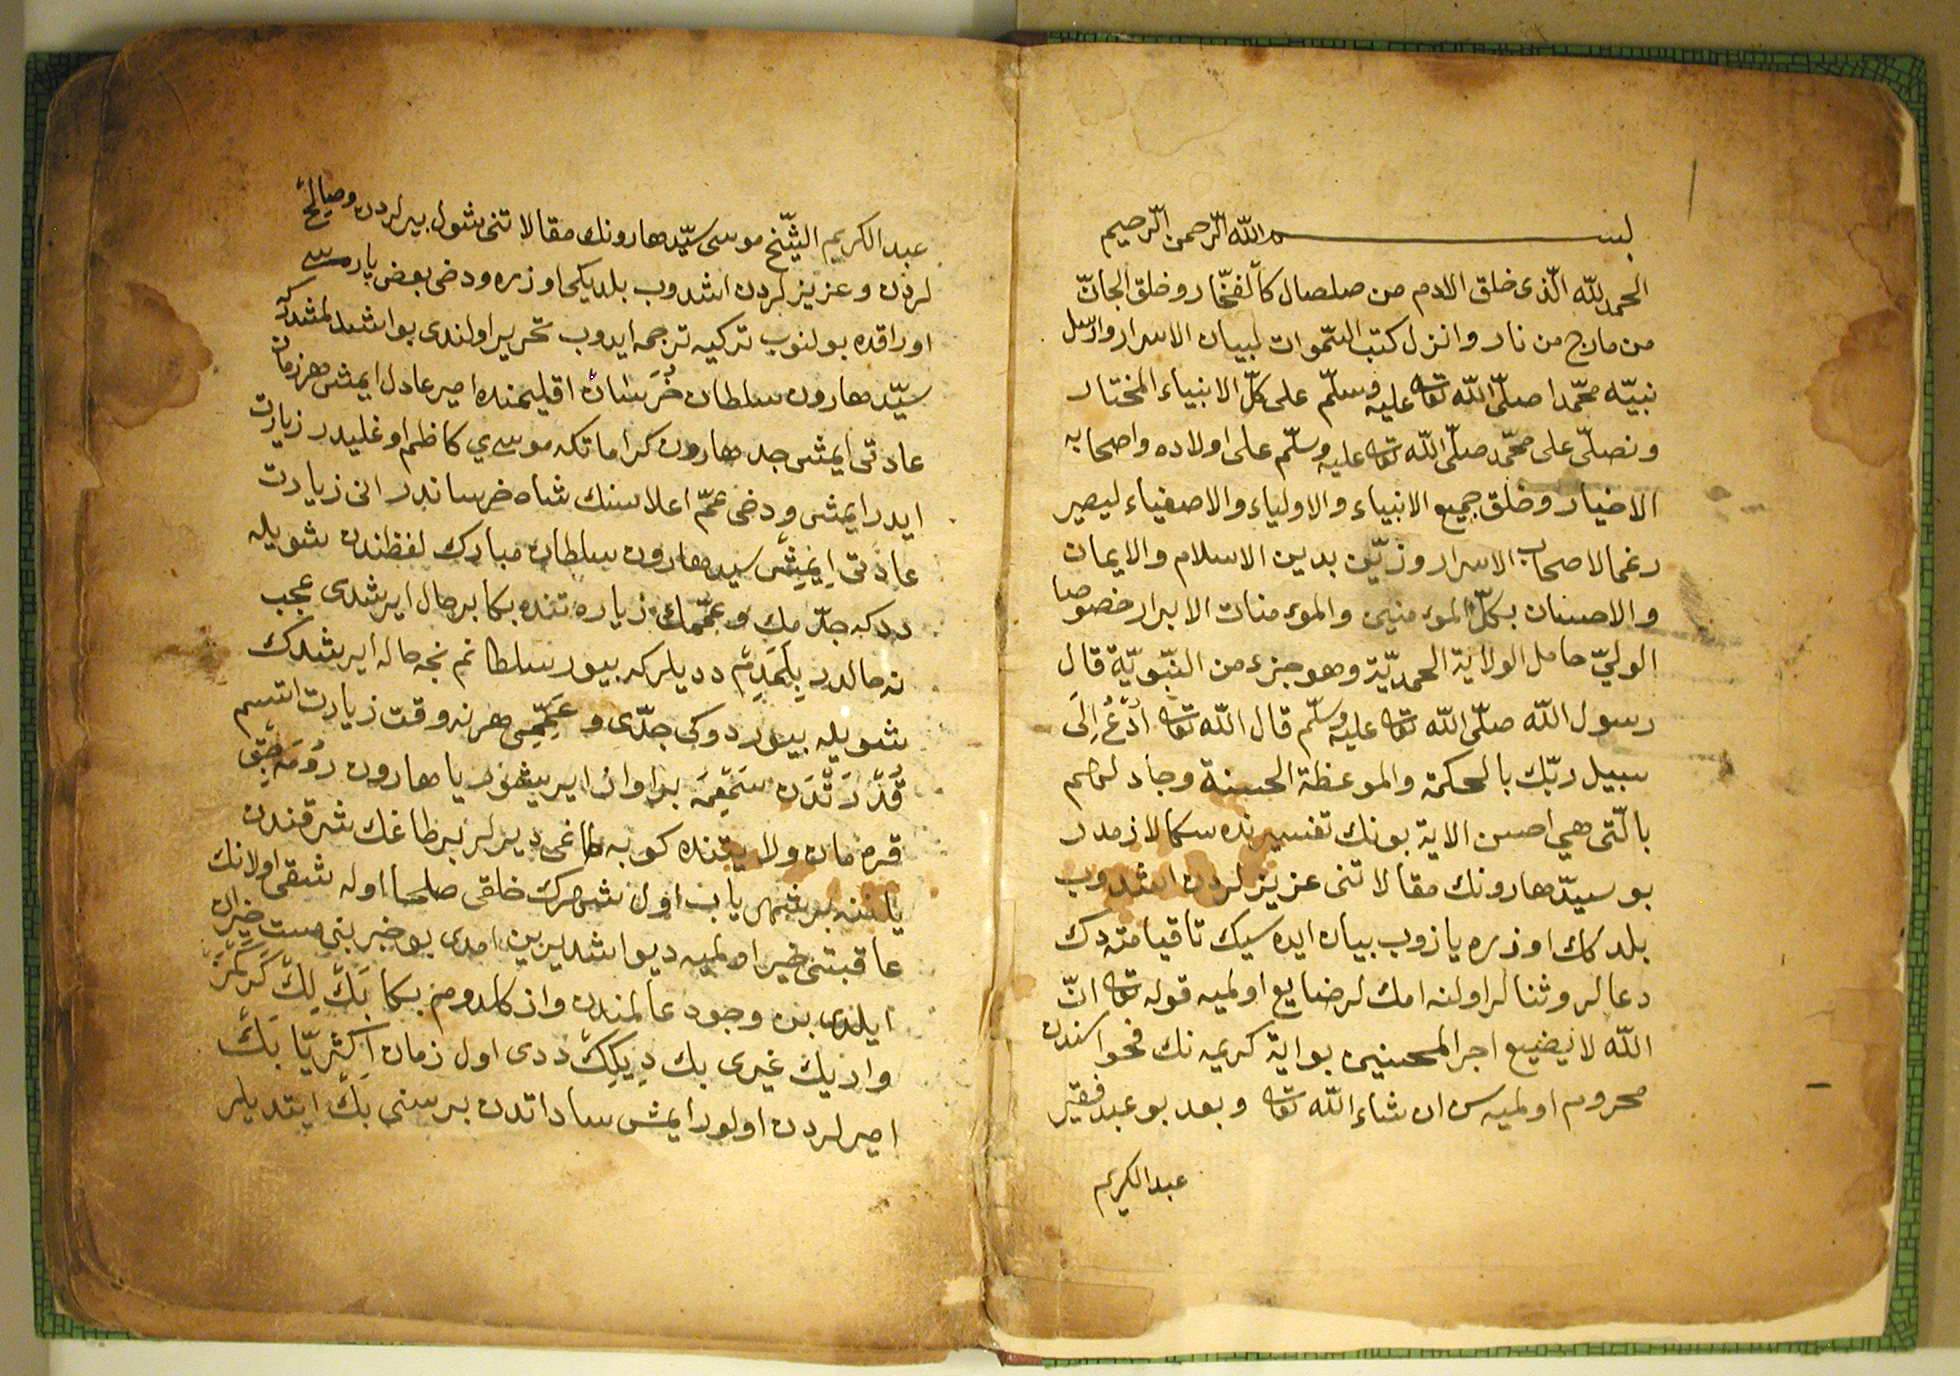 بسم الله الرحمن الرحيم
الحمد لله الّذى خلق الادم من صلصال كالفخّار وخلق الجانّ
من مارج من نار وانزل كتب السّموات لبيان الاسرار وارسل
نبيّه محمّدا صلّى الله تعا عليه وسلّم على كلّ الانبياء المختار
ونصلّى على محمّد صلّى الله تعا عليه وسلّم على اولاده واصحابه
الاخيار وخلق جميع الانبياء والاولياء والاصفياء ليصير
رغما لاصحاب الاسرار وزيّن بدين الاسلام والايمان
والاحسان بكلّ المؤمنين والمؤمنات الابرار خصوصا
الوليّ حامل الولاية المحمديّة وهو جزء من النّبويّة قال
رسول الله صلّى الله تعا عليه وسلّم قال الله تعا اُدْعُ اِلَى
سبيل ربّك بالحكمة والموعظة الحسنة وجادلهم
بالّتى هي احسن الاية بونك تفسيرنده سكا لازمدر
بو سيّد هارونك مقالاتنى عزيزلردن اشدوب
بلدكك اوزره يازوب بيان ايده سيك تا قيامته دك
دعالر وثنالر اولنه امكلر ضايع اولميه قوله تعا انّ
الله لا يضيع اجر المحسنين بو اية كريمه نك فحواسندن
محروم اولميه سن ان شاء الله تعا وبعد بو عبد فقير
عبد الكريم
عبد الكريم الشّيخ موسى سيّد هارونك مقالاتنى شول بيرلردن وصالح
لردن وعزيزلردن اشدوب بلديكى اوزره ودخى بعض پارسى
اوراقده بولنوب تركيه ترجمه ايدوب تحرير اولندى بو اشدلمشدركه
سيّد هارون سلطان خُرَسان اقليمنده امير عادل ايمش هر زمان
عادتى ايمش جد هارون كراماتكه موسي كاظم اوغليدر زيارت
ايدر ايمش ودخى عمّ اعلاسنك شاه خرساندر انى زيارت
عادتى اِيمِيش سيد هارون سلطان مبارك لفظندن شويله
دركه جدّمك وعمّمك زيارتنده بكا بر حال ايرشدى عجب
نه حالدر بِلْمَدِم دديلركه بيور سلطانم نجه حاله ايرشدك
شويله بيوردوكى جدّى وعَمِّمِى هر نه وقت زيارت اتسم
قُدْرَتْدَن سَمْعِمَه بر اواز ايريشور يا هارون رُومَه چِق
قرمان ولايتنده كوبه طاغى ديرلر بر طاغك شرقندن
يانند بر شهر ياپ اول شهرك خلقى صلحا اوله شقى اولانك
عاقبتى خير اولميه ديو اشديرين امدى بو خبر بنى مست حيران
ايلدى بن وجود عالمندن واز كلدوم بكا بَكْ لِكْ كَرَكْمَزْ
واريك غيرى بك دِيكِكْ ددى اول زمان اَكْثَرِيّا بَكْ
اميرلردن اولور ايمش ساداتدن برسنى بَكْ ايتديلر